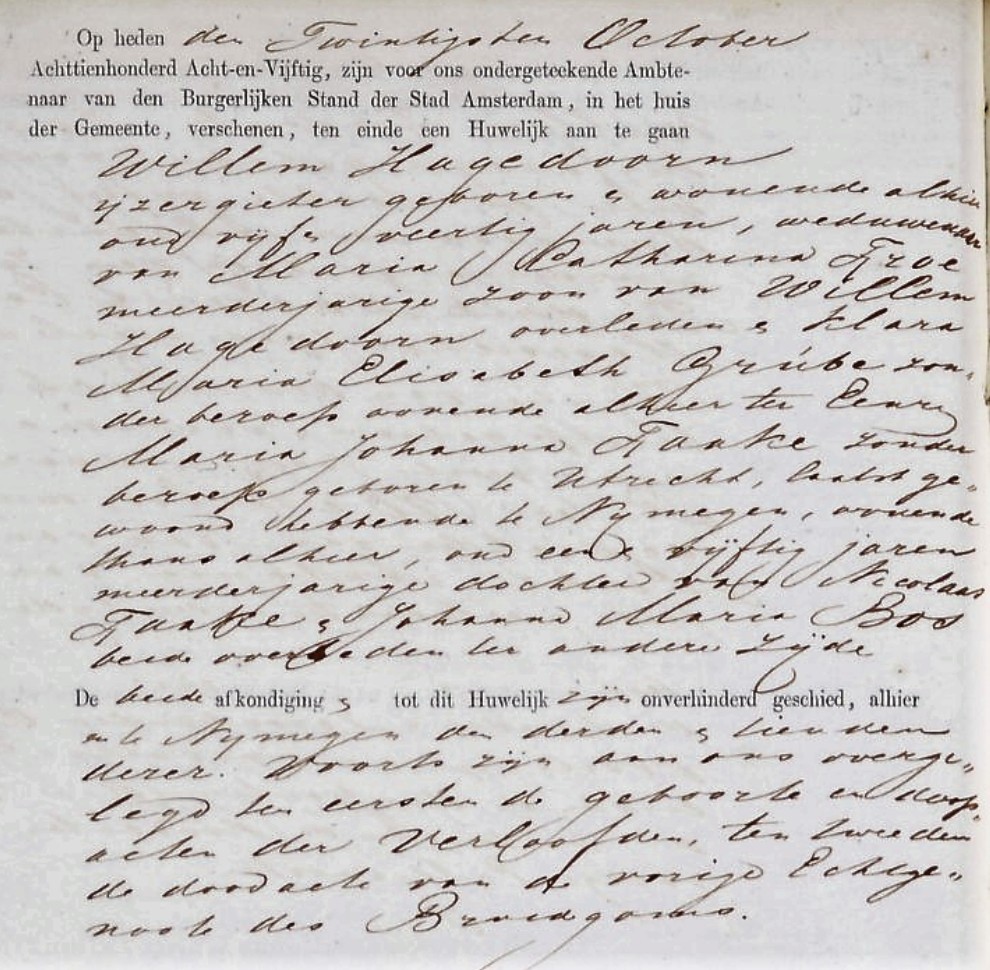 Op heden den Twintigsten October
Achttienhonderd Acht-en-Vijftig, zijn voor ons ondergeteekende Ambte-
naar van den Burgerlijken Stand der Stad Amsterdam, in het huis
der Gemeente, verschenen, ten einde een Huwelijk aan te gaan
Willem Hagedoorn
ijzergieter geboren & wonende alhier
oud vijf & veertig jaren, weduwenaar
van Maria Catharina
meerderjarige zoon van Willem
Hagedoorn overleden & Klara
Maria Elisabeth Grúbe zon„
der beroep wonende alhier ter Eenre
Maria Johanna Taake zonder
beroep geboren te Utrecht, laatst ge„
woond hebbende te Nymegen, wonende
thans alhier, oud een & vijftig jaren
meerderjarige dochter van Nicolaas
Taake & Johanna Maria Bos
beide overleden ter andere zijde
De beide afkondiging s tot dit Huwelijk zijn onverhinderd geschied, alhier
en te Nymegen den derden & tienden
dezer. Voorts zijn aan ons overge„
legd ten eersten de geboorte en doop„
acten der Verloofden, ten tweeden
de doodacte van de vorige Echtge„
noote des Bruidegoms.